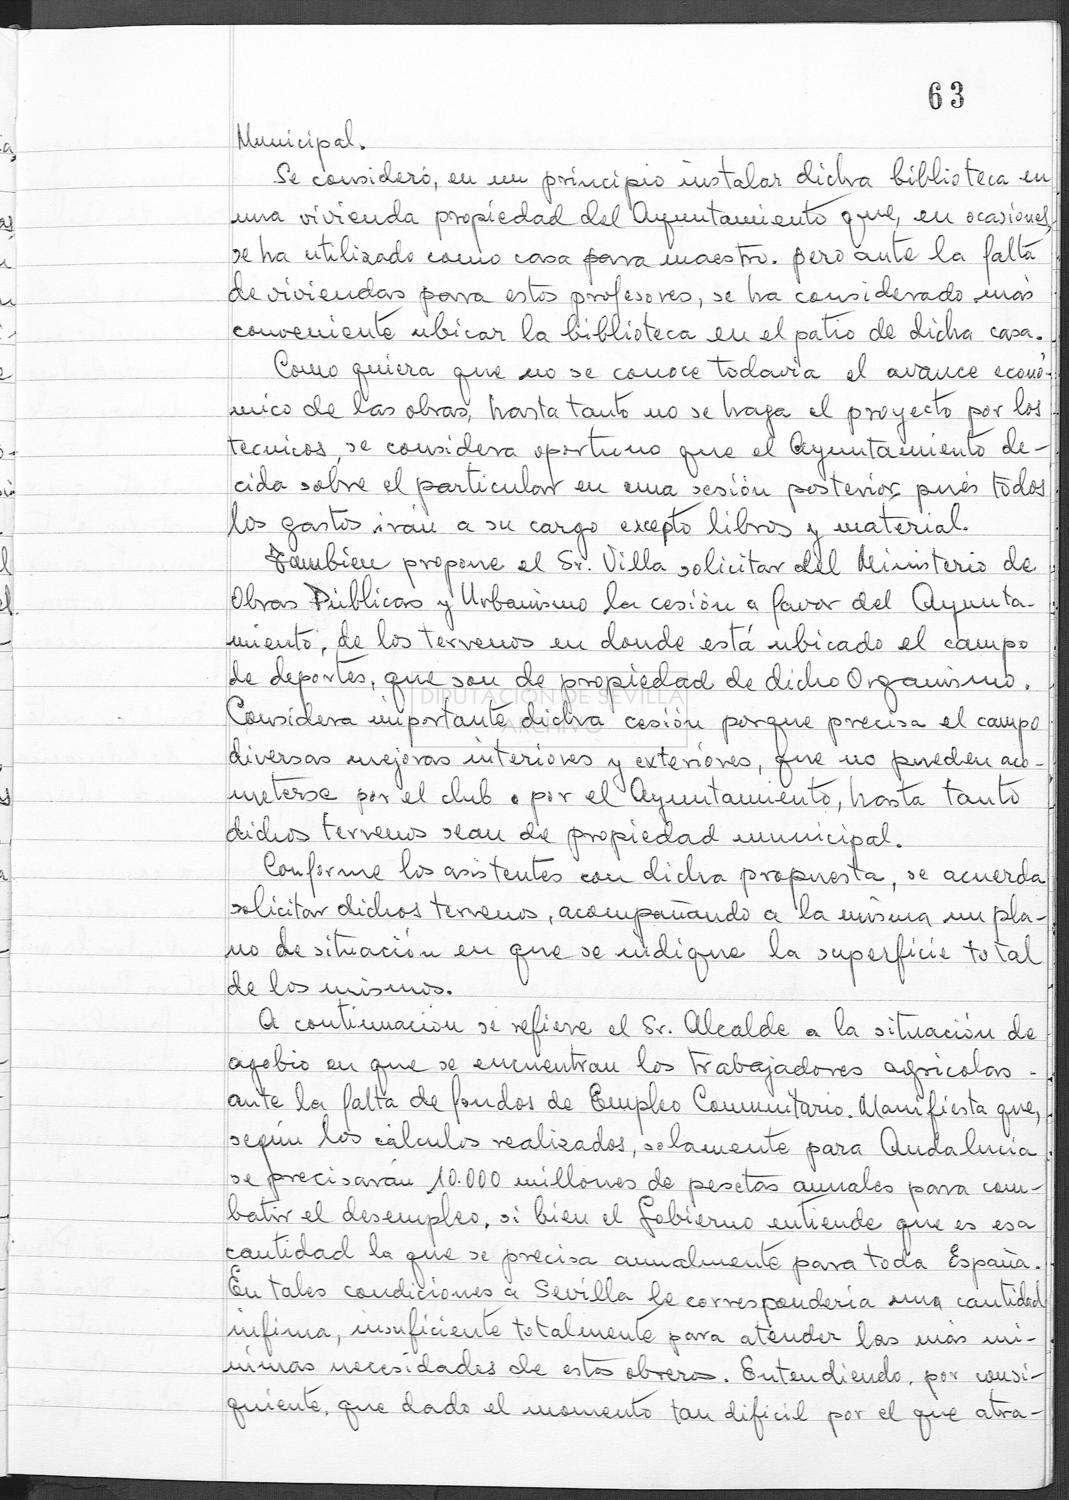 63
Municipal.
Se consideró, en un principio instalar dicha biblioteca en
una vivienda propiedad del Ayuntamiento que, en ocasiones,
se ha utilizado como casa para maestro. pero ante la falta
de viviendas para estos profesores, se ha considerado más
conveniente ubicar la biblioteca en el patio de dicha casa.
Como quiera que no se conoce todavía el avance econó-
mico de las obras, hasta tanto no se haga el proyecto por los
tecnicos, se considera oportuno que el Ayuntamiento de-
cida sobre el particular en una sesión posterior, pués todos
los gastos irán a su cargo excepto libros y material.
Tambien propone el Sr. Villa solicitar del Ministerio de
Obras Públicas y Urbanismo la cesión a favor del Ayunta-
miento, de los terrenos en donde está ubicado el campo
de deportes, que son de propiedad de dicho Organismo.
DIPUTACIÓN DE SEVILLA
ARCHIVO
Considera importante dicha cesión porque precisa el campo
diversas mejoras interiores y exteriores, que no pueden aco-
meterse por el club o por el Ayuntamiento, hasta tanto
dichos terrenos sean de propiedad municipal.
Conforme los asistentes con dicha propuesta, se acuerda
solicitar dichos terrenos, acompañando a la misma un pla-
no de situación en que se indique la superficie total
de los mismos.
A continuación se refiere el Sr. Alcalde a la situación de
agobio en que se encuentran los trabajadores agricolas -
ante la falta de fondos de Empleo Comunitario. Manifiesta que,
según los cálculos realizados, solamente para Andalucía
se precisarán 10.000 millones de pesetas anuales para com-
batir el desempleo, si bien el Gobierno entiende que es esa
cantidad la que se precisa anualmente para toda España.
En tales condiciones a Sevilla le correspondería una cantidad
infima, insuficiente totalmente para atender las más mi-
nimas necesidades de estos obreros. Entendiendo, por consi-
guiente, que dado el momento tan dificil por el que atra-